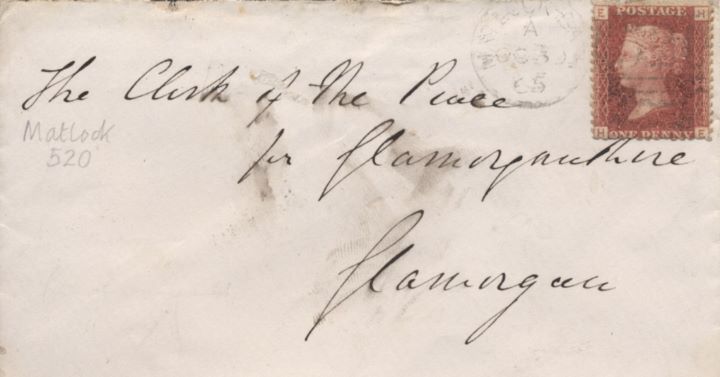 The Clerk of the Peace
for Glamorganshire
Glamorgan
Matlock
520
A
OC 30
65
E H
POSTAGE
ONE PENNY
H E